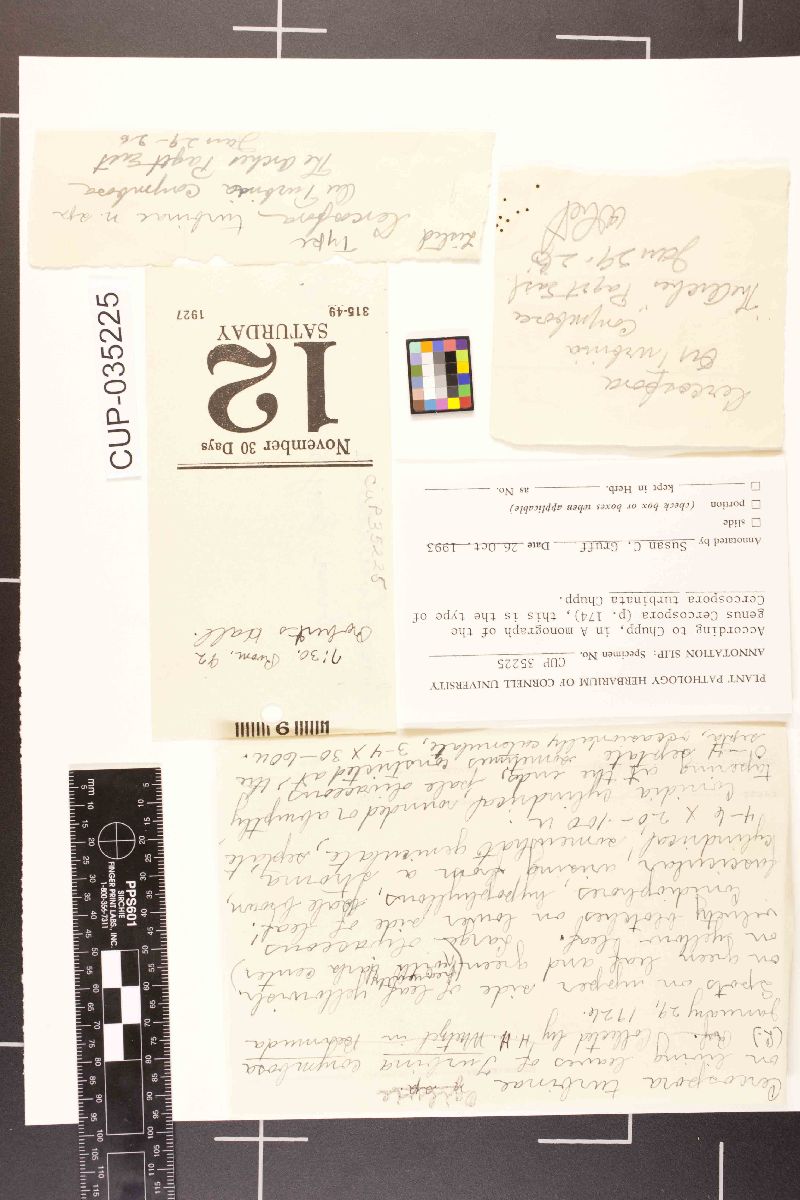 Listed Type
Cercospora turbinae n. sp.
On Turbinia Corymbosa
The Arches Paget East
Jan 29-26
Cercospora
On Turbinia
Corymbosa
The Arches Paget East
Jan 29.26
CUP-035225
November 30 Days
12
SATURDAY
315-49 1927
CUP 35225
7:30. Room, 92
Roberts Hall.
6
PLANT PATHOLOGY HERBARIUM OF CORNELL UNIVERSITY
ANNOTATION SLIP: Specimen No. CUP 35225
According to Chupp, in A monograph of the
genus Cercospora (p. 174), this is the type of
Cercospora turbinata Chupp.
Annotated by Susan C. Gruff Date 26 Oct, 1993
slide
portion (check box or boxes when applicable)
kept in Herb. as No.
Cercospora turbinae n. sp.
on living leaves of Turbina corymbosa
(R.) Collected by H H Whetzel in Bermuda
January 29, 1926.
Spots on upper side of leaf yellowish,
on green leaf and green (with dark center)
on yellow leaf. Large olivaceous
velvety blotches on lower side of leaf.
Conidiophores, hypophyllous, pale brown,
fascicular arising from a stroma
cylindrical, somewhat geniculate, septate,
4-6 x 20-100 u.
Conidia cylindrical rounded or abruptly
tapering at the ends, pale olivaceous
septate sometimes constricted at the
septa, occasionally catenulate, 3-4 x 30-60u.
mm
PPS601
SIRCHIE
FINGER PRINT LABS, INC.
1-800-356-7311